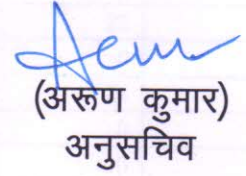 (अरूण कुमार)
अनुसचिव